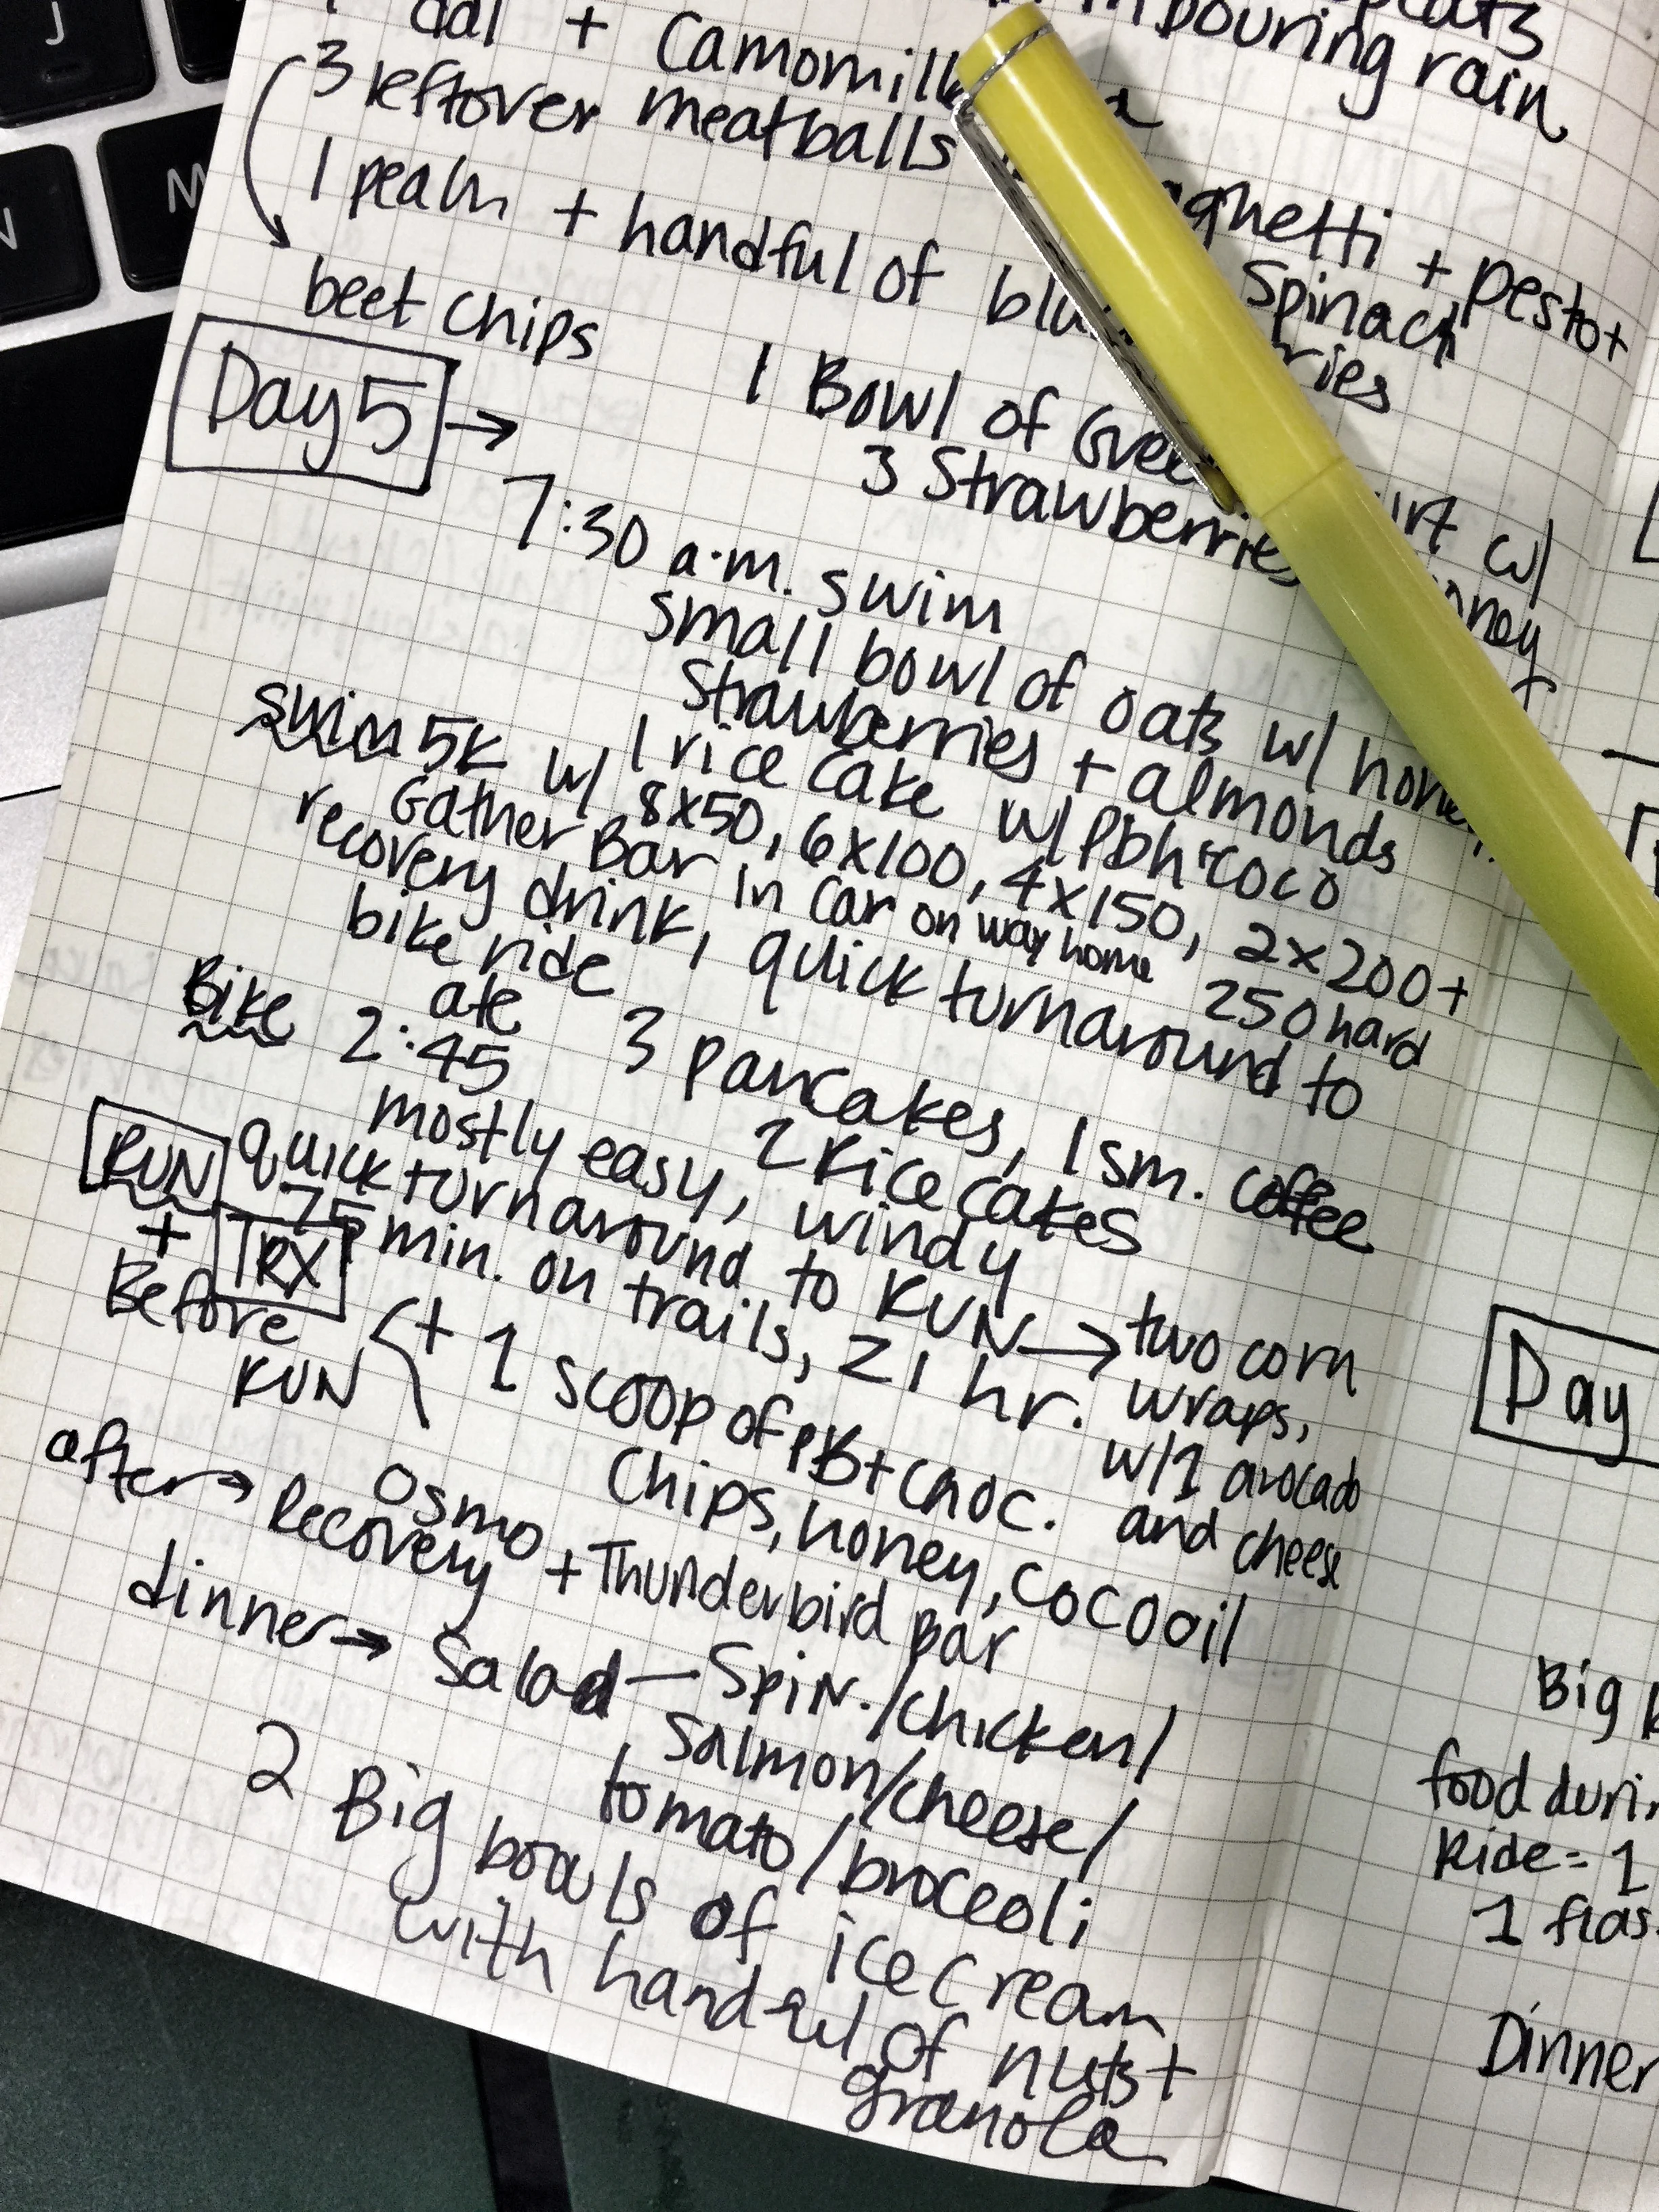 J
N
M
pouring rain
+ Camomile
3 leftover meatballs
+ pesto +
spinach
1 peach + handful of
beet chips
1 Bowl of
w/
3 Strawberries
Day 5 →
7:30 a.m. swim
small bowl of oats w/ honey
Strawberries + almonds
1 rice cake w/ Pbh + coco
swim 5k w/ 8x50, 6x100, 4x150, 2x200 +
250 hard
Gather Bar in car on way home
recovery drink, quick turnaround to
bike ride
ate 3 pancakes, 1 sm. coffee
2 rice cakes
Bike 2:45
mostly easy, windy
RUN quick turnaround to RUN → two corn
wraps,
w/1 avocado
and cheese
+ TRX
75 min. on trails, 21 hr.
Before
RUN
+ 1 scoop of PB + choc.
Chips, honey, coco oil
after → Osmo
Recovery + Thunderbird Bar
dinner → Salad — Spin./chicken/
Salmon/cheese/
tomato/broccoli
2 Big bowls of ice cream
with handful of nuts +
granola
Day
Big
food
Ride = 1
1
Dinner